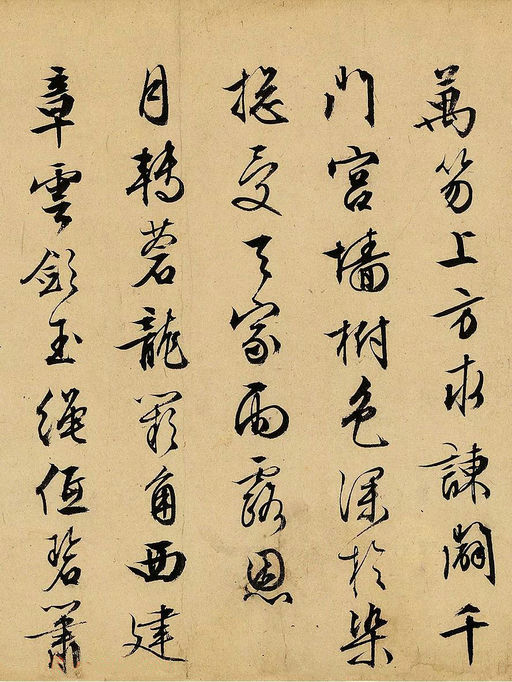 萬笏上方求諫闢千
門宮墻樹色深於染
總受天家雨露恩
月轉蒼龍闕角西建
章雲斂玉繩低碧簫